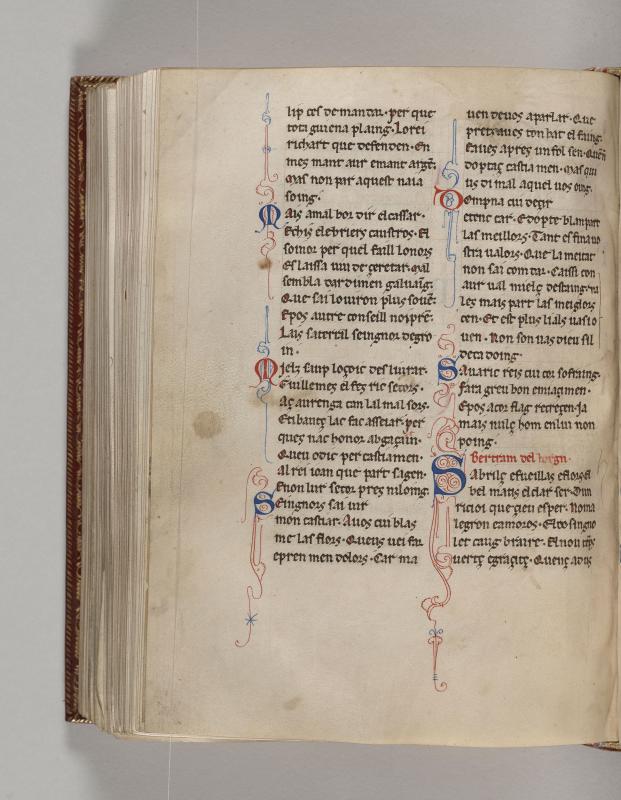 lip ces demandar· per que
tota guiena plaing· Lorei
richart que defenden· En
mes mant aur emant argẽt·
Mas non par aquest naia
soing·
Mais amal bor dir elcassar·
Echis elebriers caustros· El
soinor per quel faill lonors
Eslaissa
sembla dardimen galuaing·
Que sai louiron plus souẽ·
Epos autre conseill noipre·
Lais saterril seingnor degro
in·
Miels saup loçoic desliurar·
Guillemes elfez ric secors·
Aç aurenga can lal mal sors·
Etibautç lac fac assetar· per
queç nac honor abgaçain·
Queu odic per castiamen·
Al rei ioan que part sagen·
Enon lur secor pres niloing·
Seingnors sai uir
mon castiar· Auos cui blas
me las flors· Queus uei fai
epren men dolors· Car ma
uen deuos aparlar· Que
pretz aues ton bat el faing·
Eaues apres un fol sen· Quen
doptaç castiamen· mas qui
us di mal aquel uos oing·
Dompna cui deçir
etenc car· Edopte blanpart
Las meillors· Tant es fina uo
stra ualors· Que la meitat
non sai comtar· Caissi con
aur ual mielç destaing· ua
leç mais part las meiglors
cen· Et est plus lials uas io
uen· Non son uas dieu sil
deca doing·
Sauaric reis cui cor sofraing·
Fara greu bon enuaçimen·
Epos acor flac recreçen· Ja
mais nulç hom enlui non
poing·
Bertram del borgn·
Sabrilç efueillas eflors el
bel matis elclar ser· Dun
ric ioi que çieu esper· Noma
legron eamors· Elrosingno
let caug braire· Elnou tẽps
uertç egraçitç· Quenç aduç